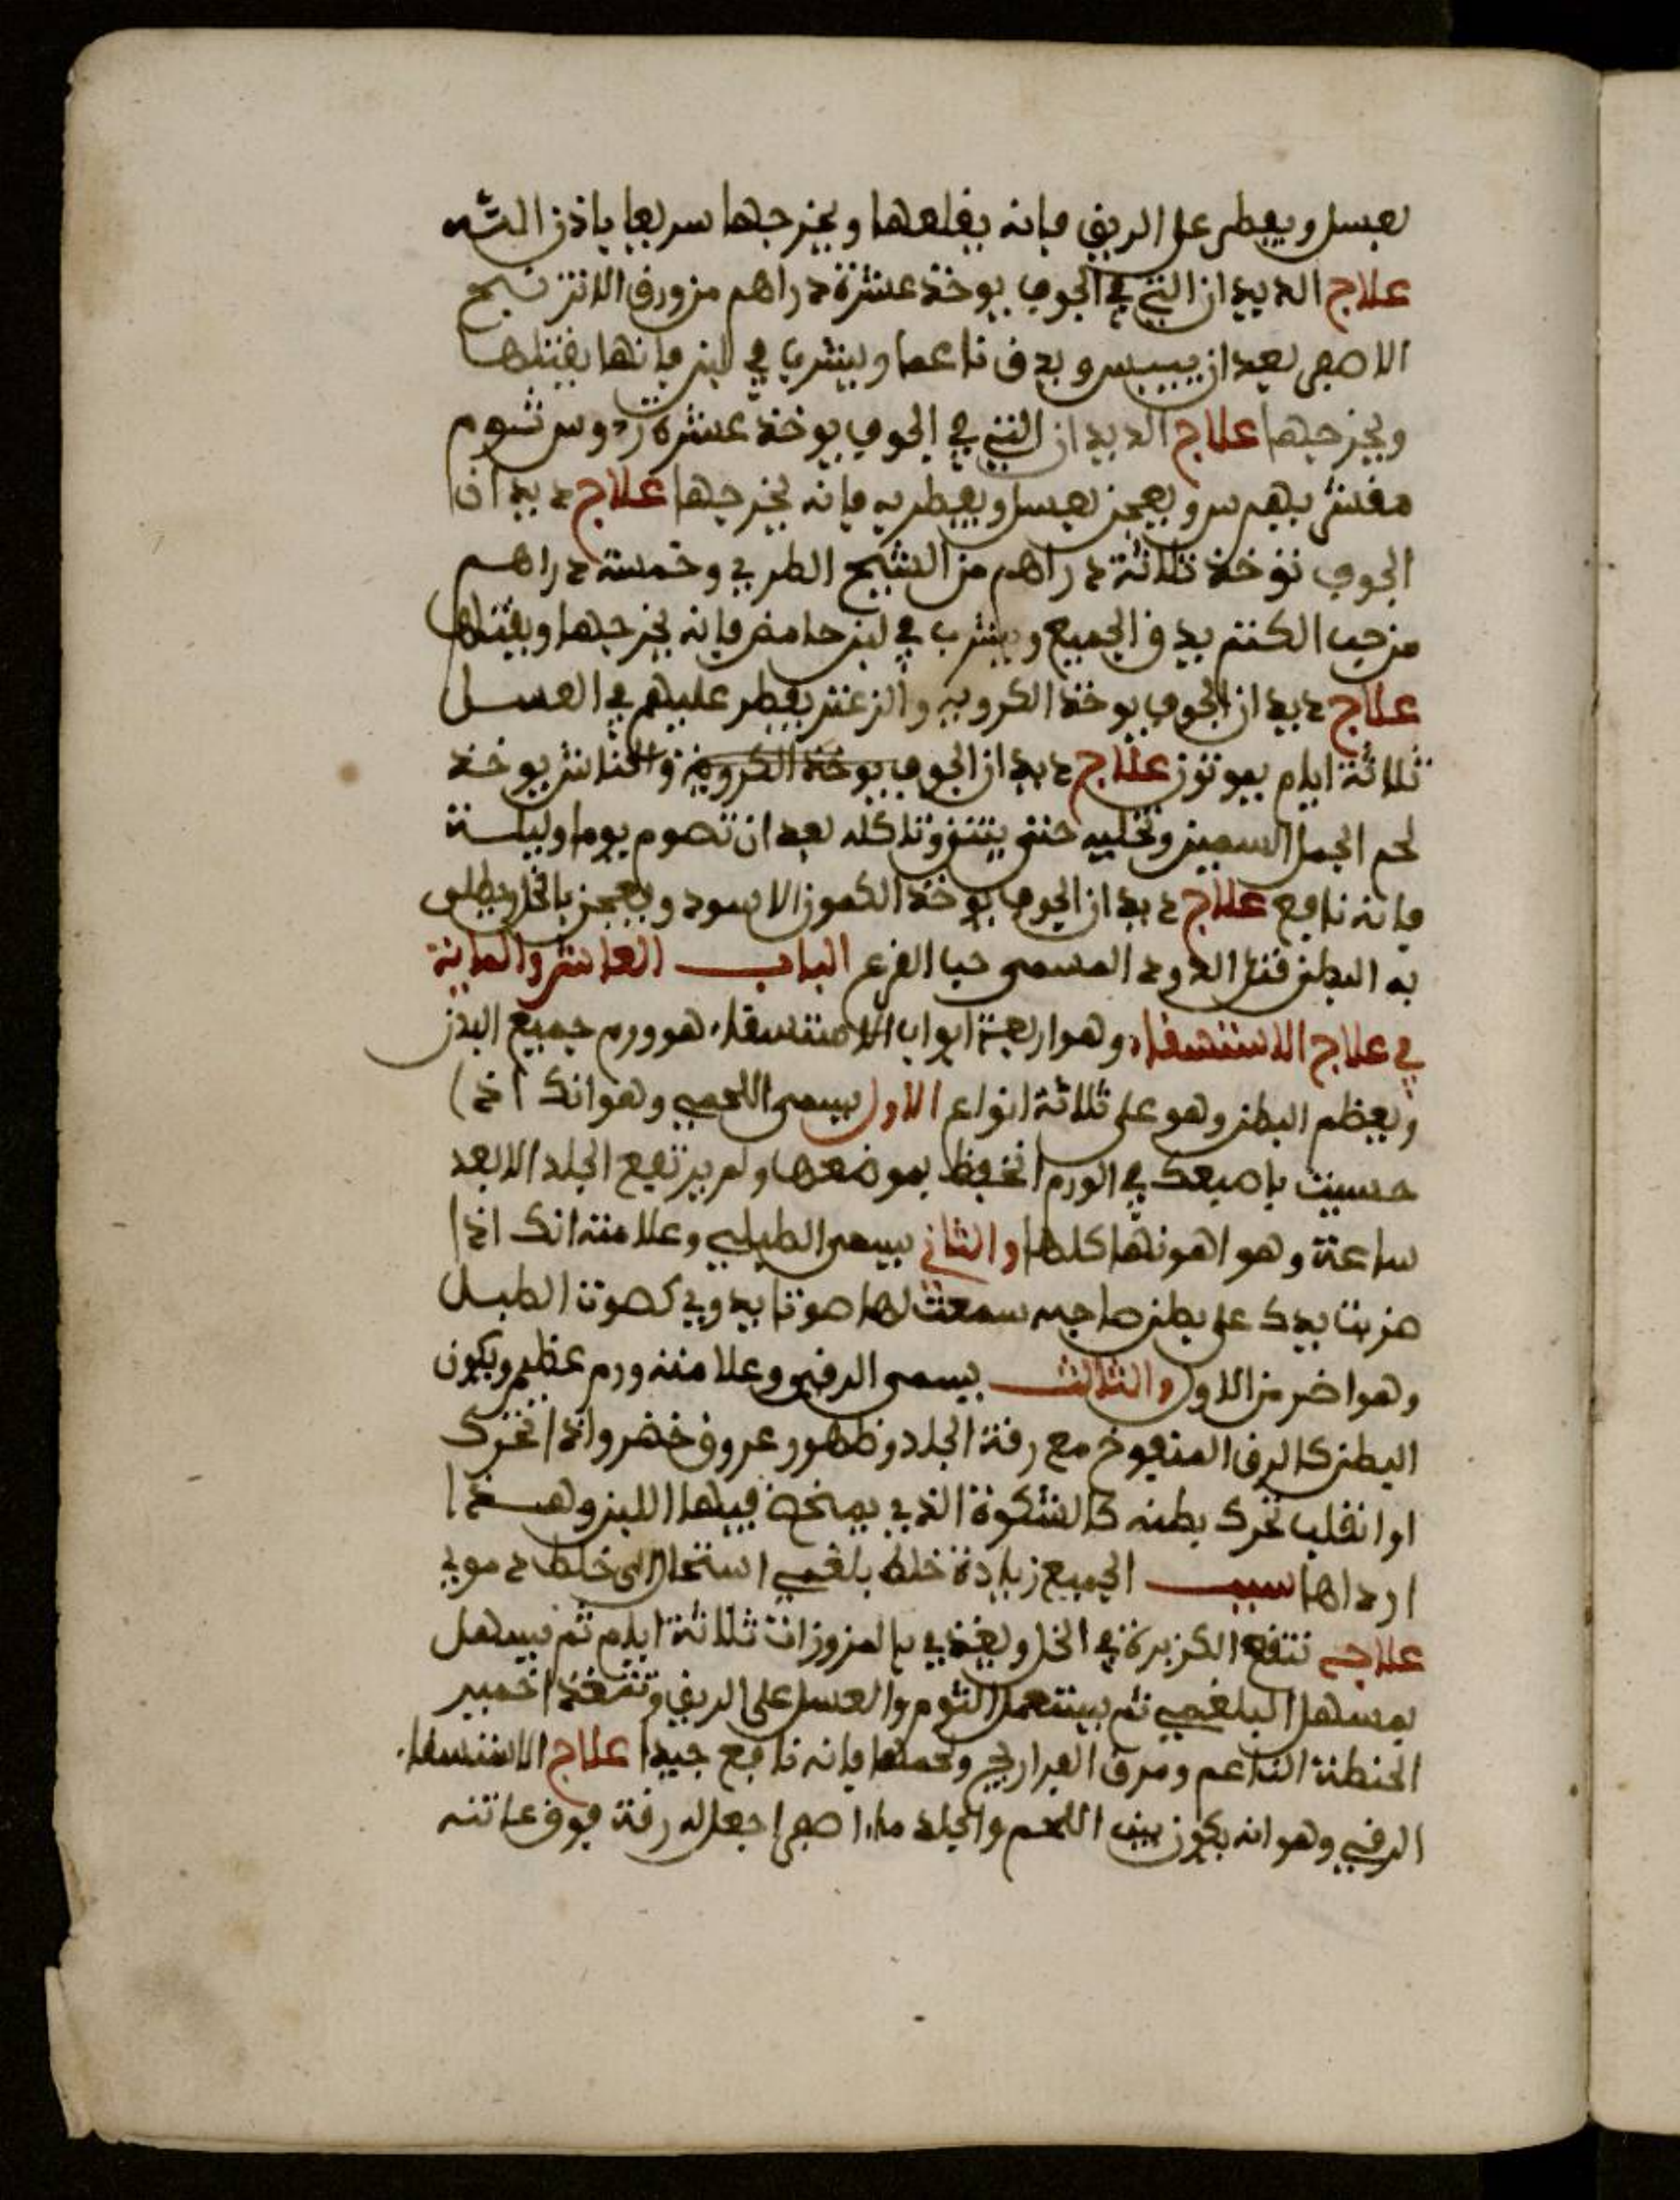 بعسل ويفطر على الريق فإنه يقلعها ويخرجها سريعا باذن الله
علاج الديدان التي في الجوف يوخذ عشرة دراهم من ورق الاترنج
الاصفر بعد ان ييبس ويدق ناعما ويشرب في لبن فانها يقتلها
ويخرجها علاج الديدان التي في الجوف يوخذ عشرة رءوس ثوم
مقشر يهرس ويعجن بعسل ويفطر به فانه يخرجها علاج ديدان
الجوف توخذ ثلاثة دراهم من الشيح الطري وخمسة دراهم
من حب الكتم يدق الجميع ويشرب في لبن حامض فانه يخرجها ويقتلها
علاج ديدان الجوف يوخذ الكروية والزعتر يفطر عليهم في العسل
ثلاثة ايام يموتون علاج ديدان الجوف يوخذ الكروية والحناش يوخذ
لحم الجمل السمين وتخليه حتى ينتن وتاكله بعد ان تصوم يوما وليلة
فانه نافع علاج ديدان الجوف يوخذ الكمون الاسود ويعجن بالخل ويطلى
به البطن قتل الدود المسمى حب القرع الباب العاشر والماية
في علاج الاستسقاء وهو اربعة ابواب الاستسقاء هو ورم جميع البدن
ويعظم البطن وهو على ثلاثة انواع الاول يسمى اللحمي وهو انك اذا
حسيت باصبعك في الورم انخفظ بموضعها ولم يرتفع الجلد الا بعد
ساعة وهو اهونها كلها والثاني يسمى الطبلي وعلامته انك اذا
ضربت بيدك على بطن صاحبه سمعت لها صوتا يدوي كصوت الطبل
وهو اضر من الاول والثالث يسمى الزقي وعلامته ورم عظيم ويكون
البطن كالزق المنفوخ مع رقة الجلد وظهور عروق خضر واذا تحرك
او انقلب تحرك بطنه كالشكوة الذي يمخض فيها اللبن وهذا
ارداها سبب الجميع زيادة خلط بلغمي استحال الى خلط دموي
علاجه تنقع الكزبرة في الخل ويغذي بالمزوزات ثلاثة ايام ثم يسهل
بمسهل البلغمي ثم يستعمل الثوم والعسل على الريق وتتغذا خمير
الحنطة الناعم ومرق الفراريج ولحمها فانه نافع جيدا علاج الاستسقاء
الزقي وهو انه يكون بين اللحم والجلد ماء اصفر اجعل له رقة فوق عانته